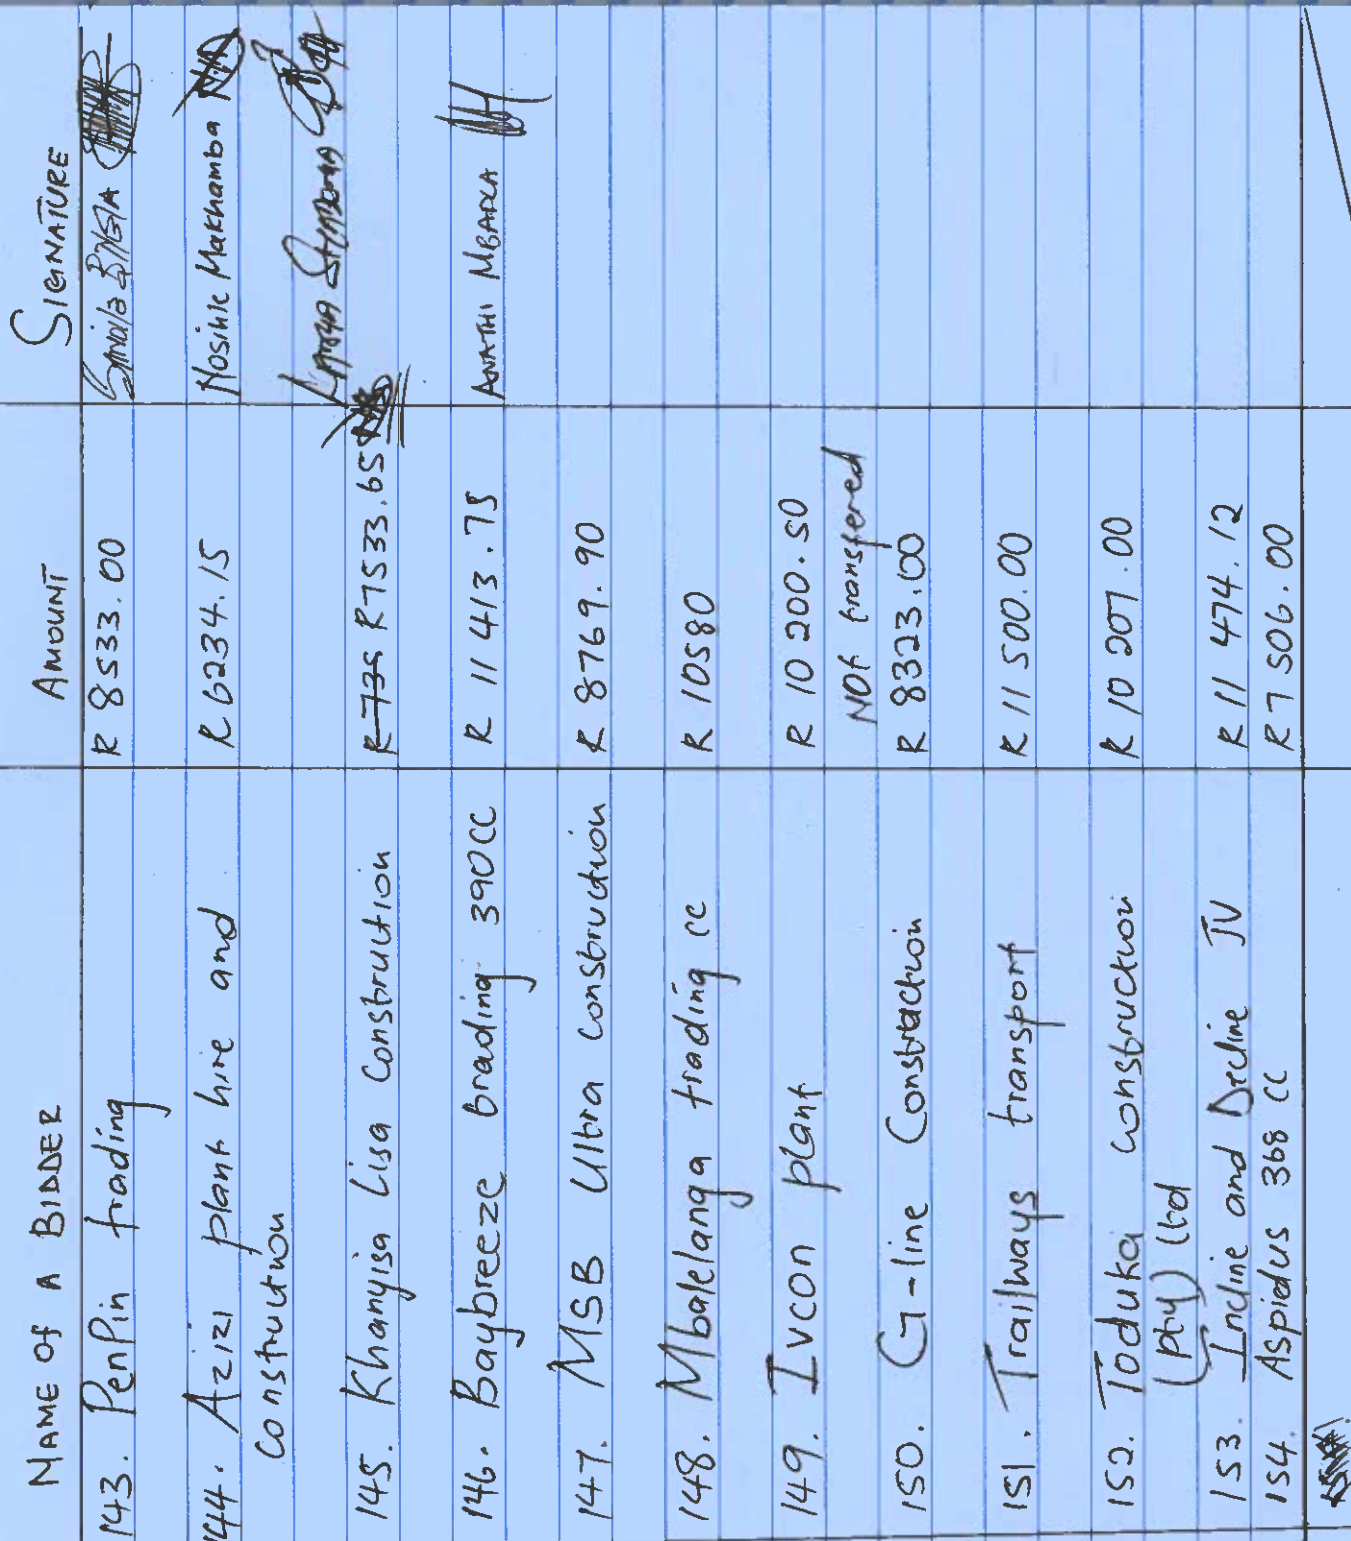 NAME OF A BIDDER AMOUNT SIGNATURE
143. PenPin trading R 8533.00
144. Azizi plant hire and R 6234.15 Nosihle Makhamba
construction
145. Khanyisa Lisa Construction R 735 R7533.65
146. Baybreeze trading 390CC R 11 413.75 ANATHI MBADLA
147. MSB Ultra construction R 8769.90
148. Mbalelanga trading cc R 10580
149. Ivcon plant R 10 200.50
NOt transfered
150. G-line Construction R 8323.00
151. Trailways transport R 11 500.00
152. Toduka construction R 10 207.00
(pty) ltd
153. Incline and Decline JV R 11 474.12
154. Aspidus 368 CC R7 506.00